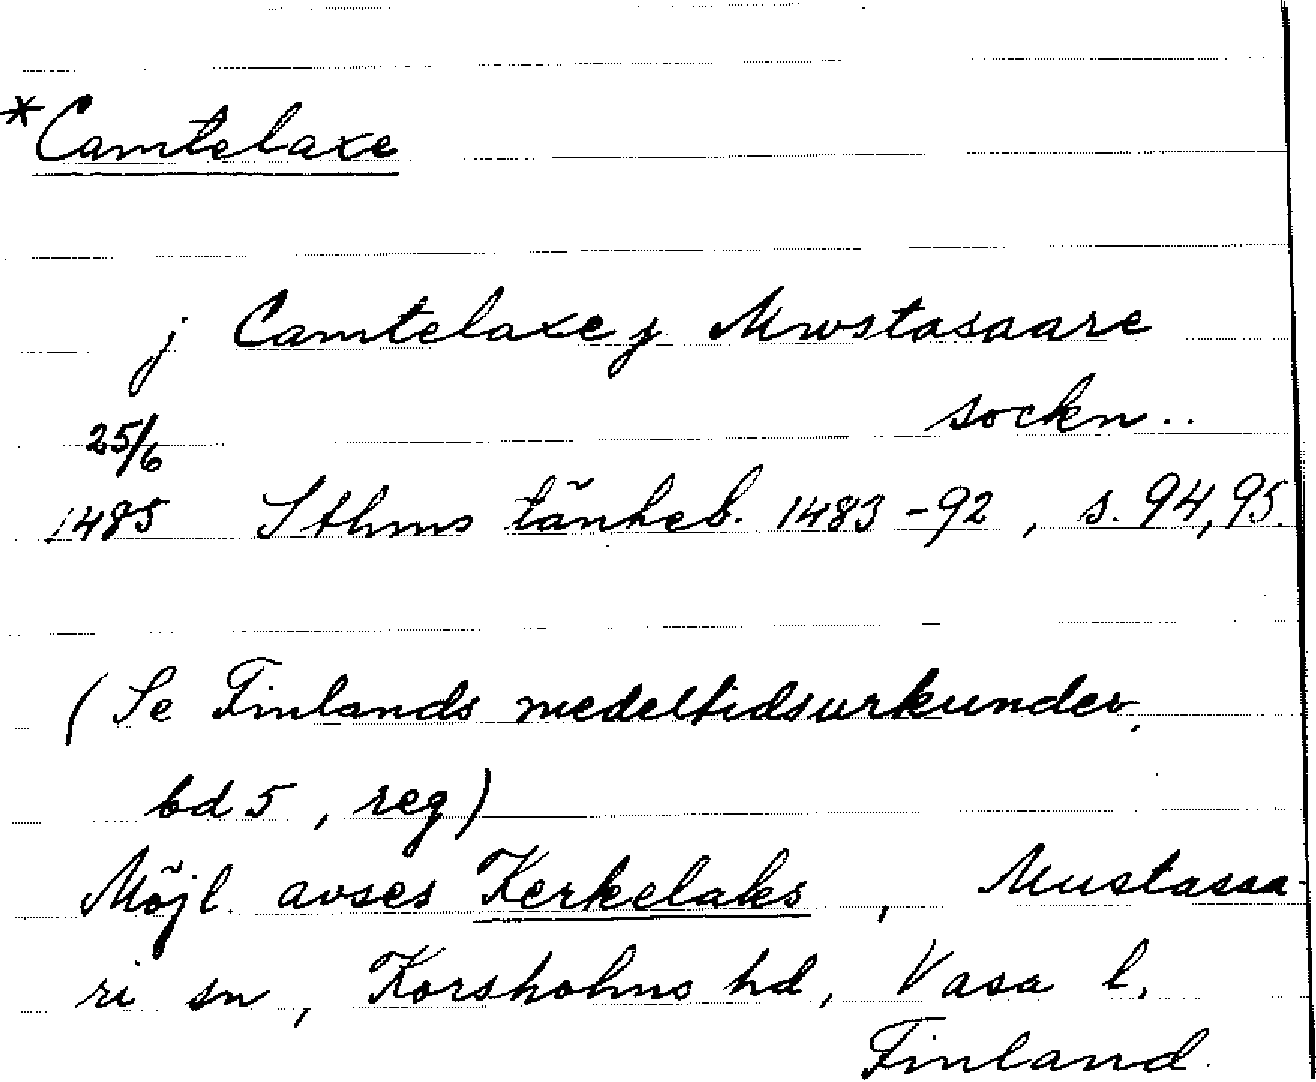 *Camtelaxe
j Camtelaxe j Mwstasaare
sockn..
25/6
1485 Sthms tänkeb. 1483-92, s. 94,95.
(Se Finlands medeltidsurkunder,
bd 5, reg)
Möjl. avses Kerkelaks, Mustasaa-
ri sn, Korsholms hd, Vasa l.
Finland.